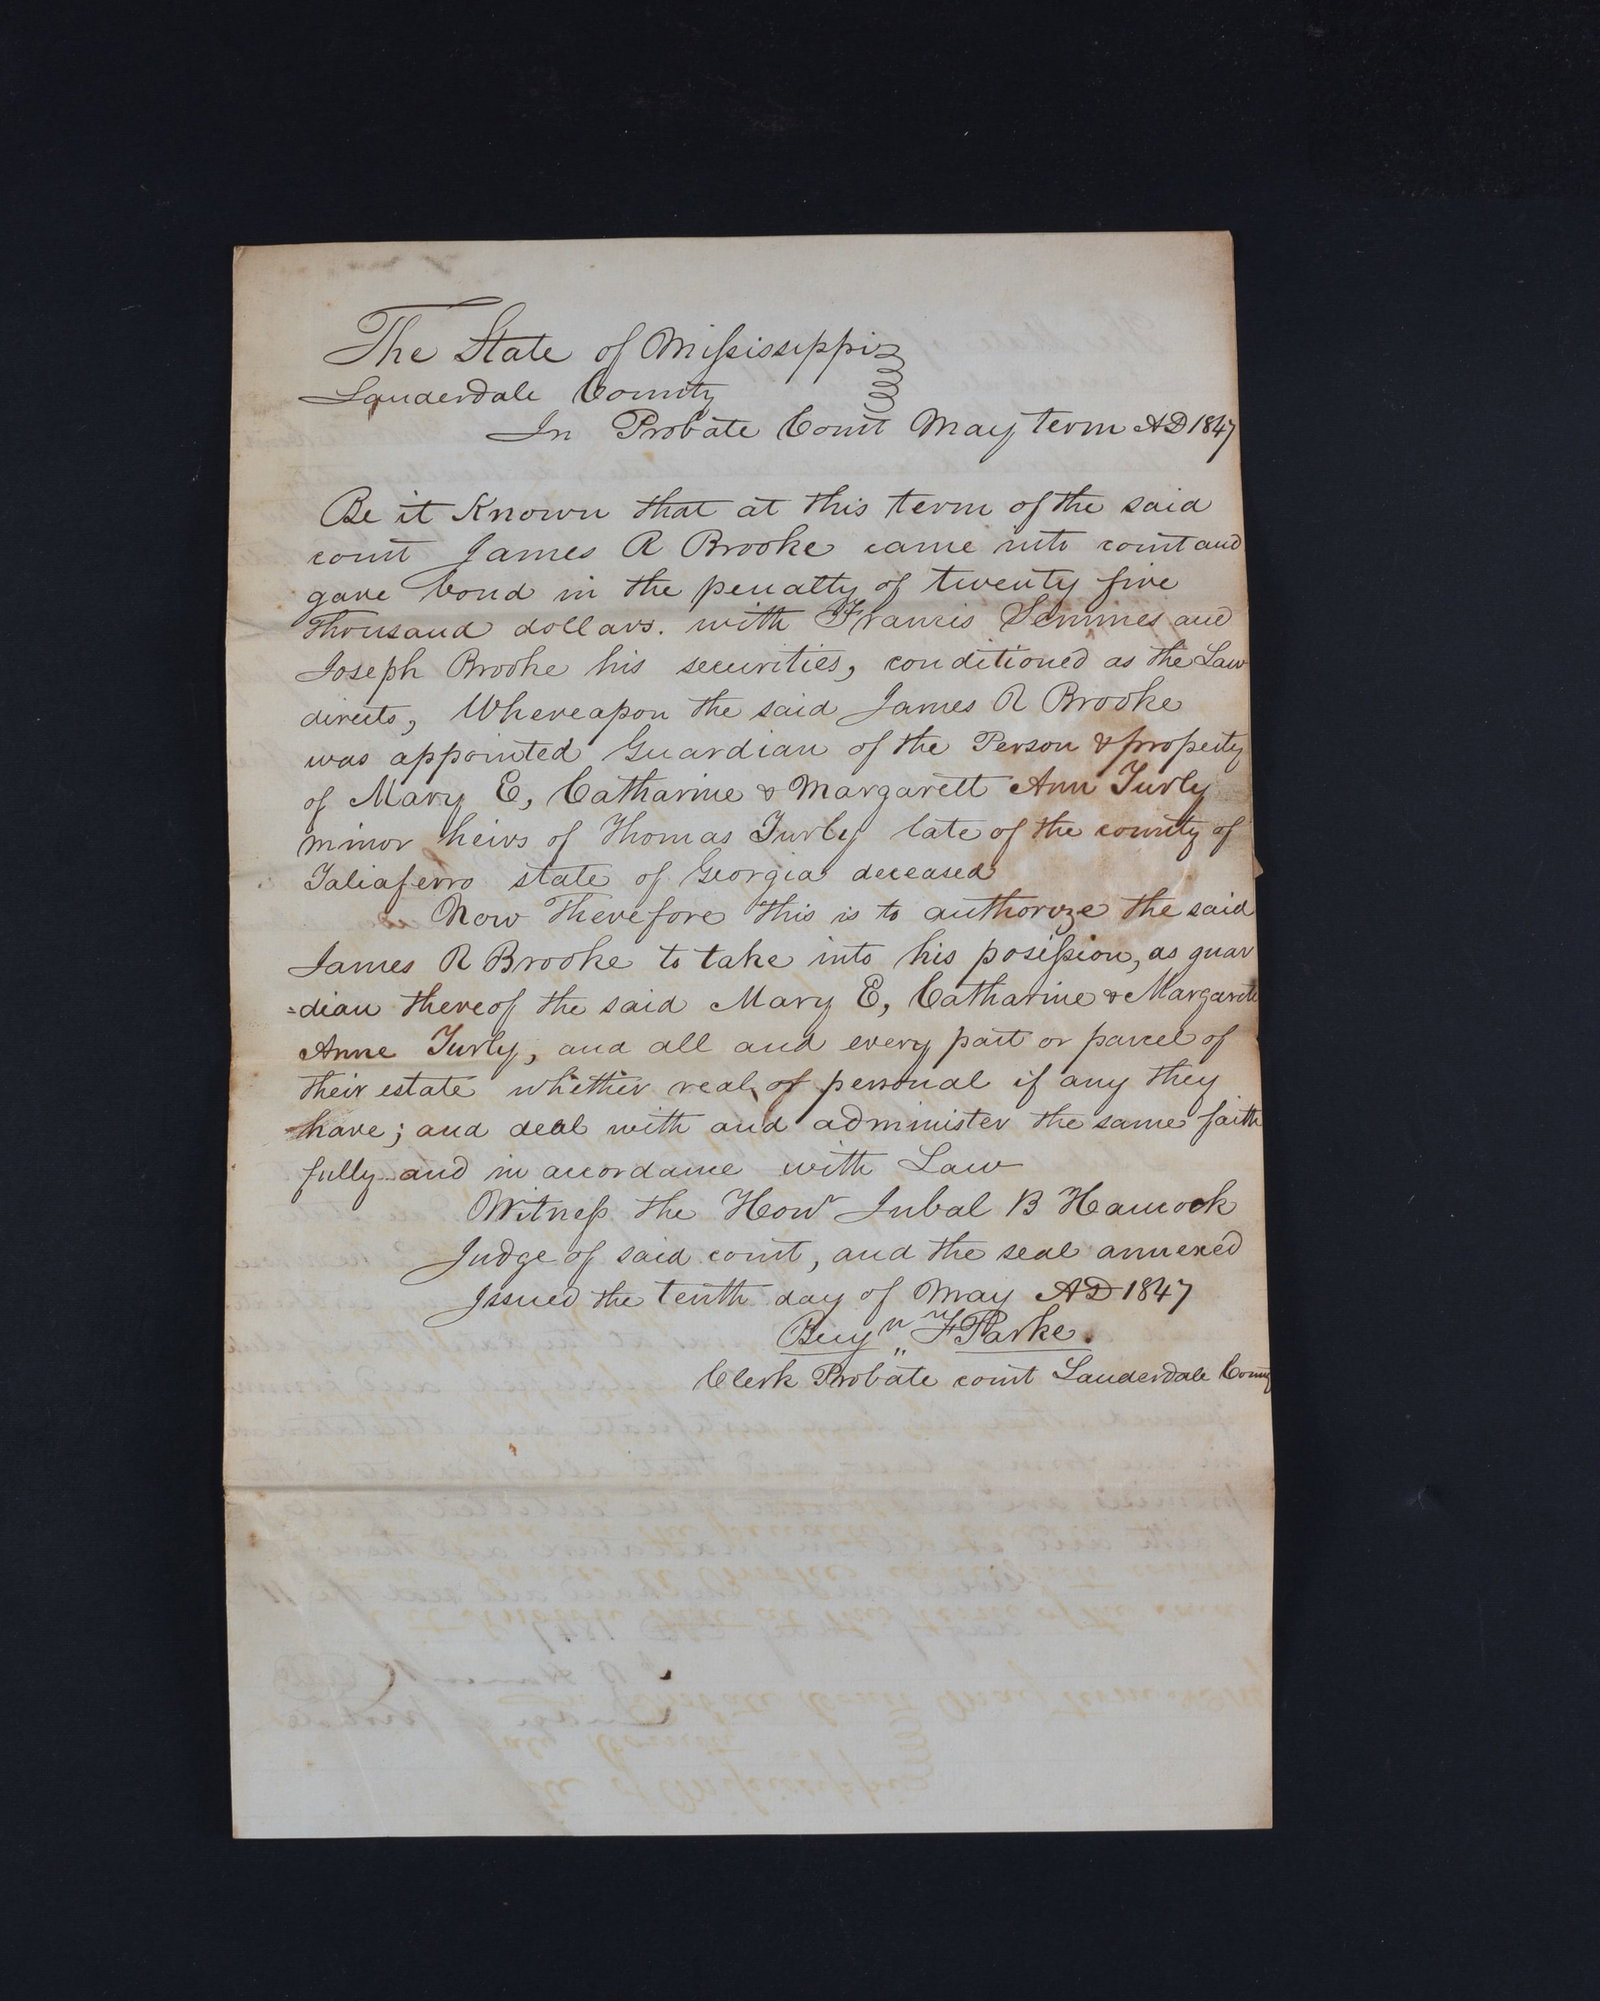 The State of Mississippi
Lauderdale County
In Probate Court May term AD 1847
Be it Known that at this term of the said
court James R Brooke came into court and
gave bond in the penalty of twenty five
thousand dollars. with Francis Semmes and
Joseph Brooke his securities, conditioned as the Law
directs, Whereapon the said James R Brooke
was appointed Guardian of the Person & property
of Mary E, Catharine & Margarett Ann Turly
minor heirs of Thomas Turly late of the county of
Taliaferro state of Georgia deceased
Now Therefore this is to authorize the said
James R Brooke to take into his posission, as guar
=dian thereof the said Mary E, Catharine & Margarett
Anne Turly, and all and every part or parcel of
their estate whether real, or personal if any they
have; and deal with and administer the same faith
fully and in accordance with Law
Witness the Honr Jubal B Hancock
Judge of said court, and the seal annexed
Issued the tenth day of May AD 1847
Benjn F Parke.
Clerk Probate court Lauderdale County